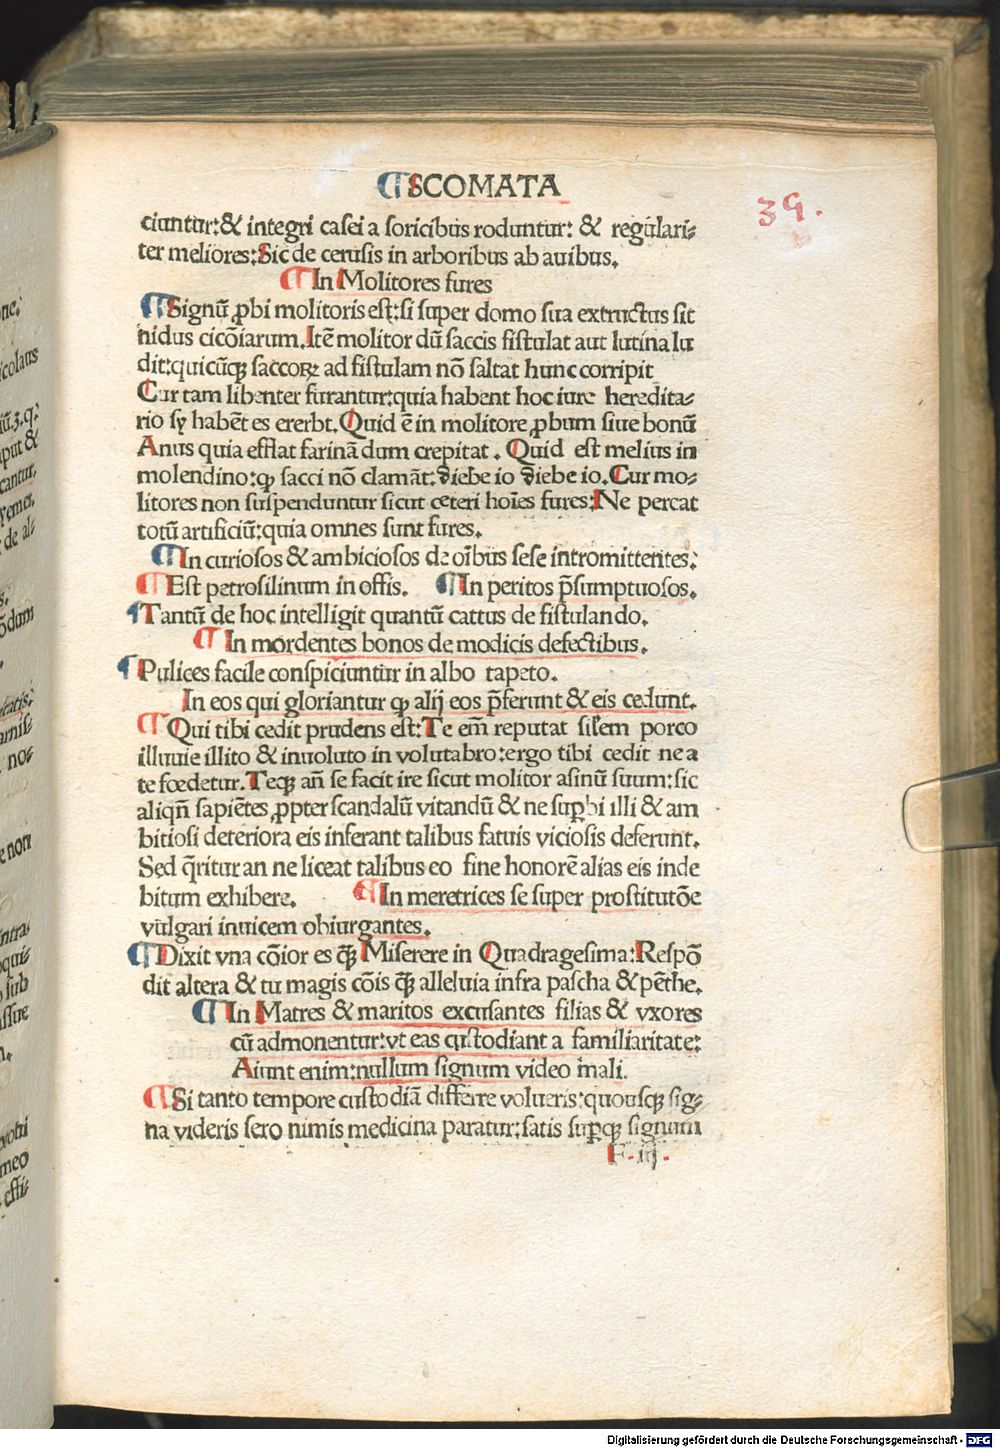 ¶SCOMATA
39.
ciuntur:& integri casei a soricibus roduntur: & regulari⸗
ter meliores:Sic de cerusis in arboribus ab auibus.
¶In Molitores fures
¶Signū ꝓbi molitoris est:si super domo sua extructus sit
nidus cicōiarum.Itē molitor dū saccis fistulat aut lutina lu
dit:quicūqꝫ saccoꝝ ad fistulam nō saltat hunc corripit
Cur tam libenter furantur:quia habent hoc iure heredita⸗
rio sy habēt es ererbt.Quid ē in molitore ꝓbum siue bonū
Anus quia efflat farinā dum crepitat. Quid est melius in
molendino:ꝙ sacci nō clamāt:diebe io diebe io.Cur mo⸗
litores non suspenduntur sicut ceteri hoīes fures:Ne pereat
totū artificiū:quia omnes sunt fures.
¶In curiosos & ambiciosos de oībus sese intromittentes:
¶Est petrosilinum in offis. ¶In peritos p̄sumptuosos.
¶Tantū de hoc intelligit quantū cattus de fistulando.
¶ In mordentes bonos de modicis defectibus.
¶Pulices facile conspiciuntur in albo tapeto.
In eos qui gloriantur ꝙ alij eos p̄ferunt & eis cedunt.
¶Qui tibi cedit prudens est:Te em̄ reputat sil̄em porco
illuuie illito & inuoluto in volutabro:ergo tibi cedit ne a
te fœdetur.Teqꝫ an̄ se facit ire sicut molitor asinū suum:sic
aliqn̄ sapiētes ꝓpter scandalū vitandū & ne suꝑbi illi & am
bitiosi deteriora eis inferant talibus fatuis viciosis deferunt.
Sed q̄ritur an ne liceat talibus eo fine honorē alias eis inde
bitum exhibere. ¶In meretrices se super prostitutōe
vulgari inuicem obiurgantes.
¶Dixit vna cōior es q̄ꝫ Miserere in Quadragesima:Respō
dit altera & tu magis cōis q̄ꝫ alleluia infra pascha & pēthe.
¶In Matres & maritos excusantes filias & vxores
cū admonentur:vt eas custodiant a familiaritate:
Aiunt enim:nullum signum video mali.
¶Si tanto tempore custodiā differre volueris:quousqꝫ sig⸗
na videris sero nimis medicina paratur:satis suꝑqꝫ signum
F.iij.
Digitalisierung gefördert durch die Deutsche Forschungsgemeinschaft - DFG